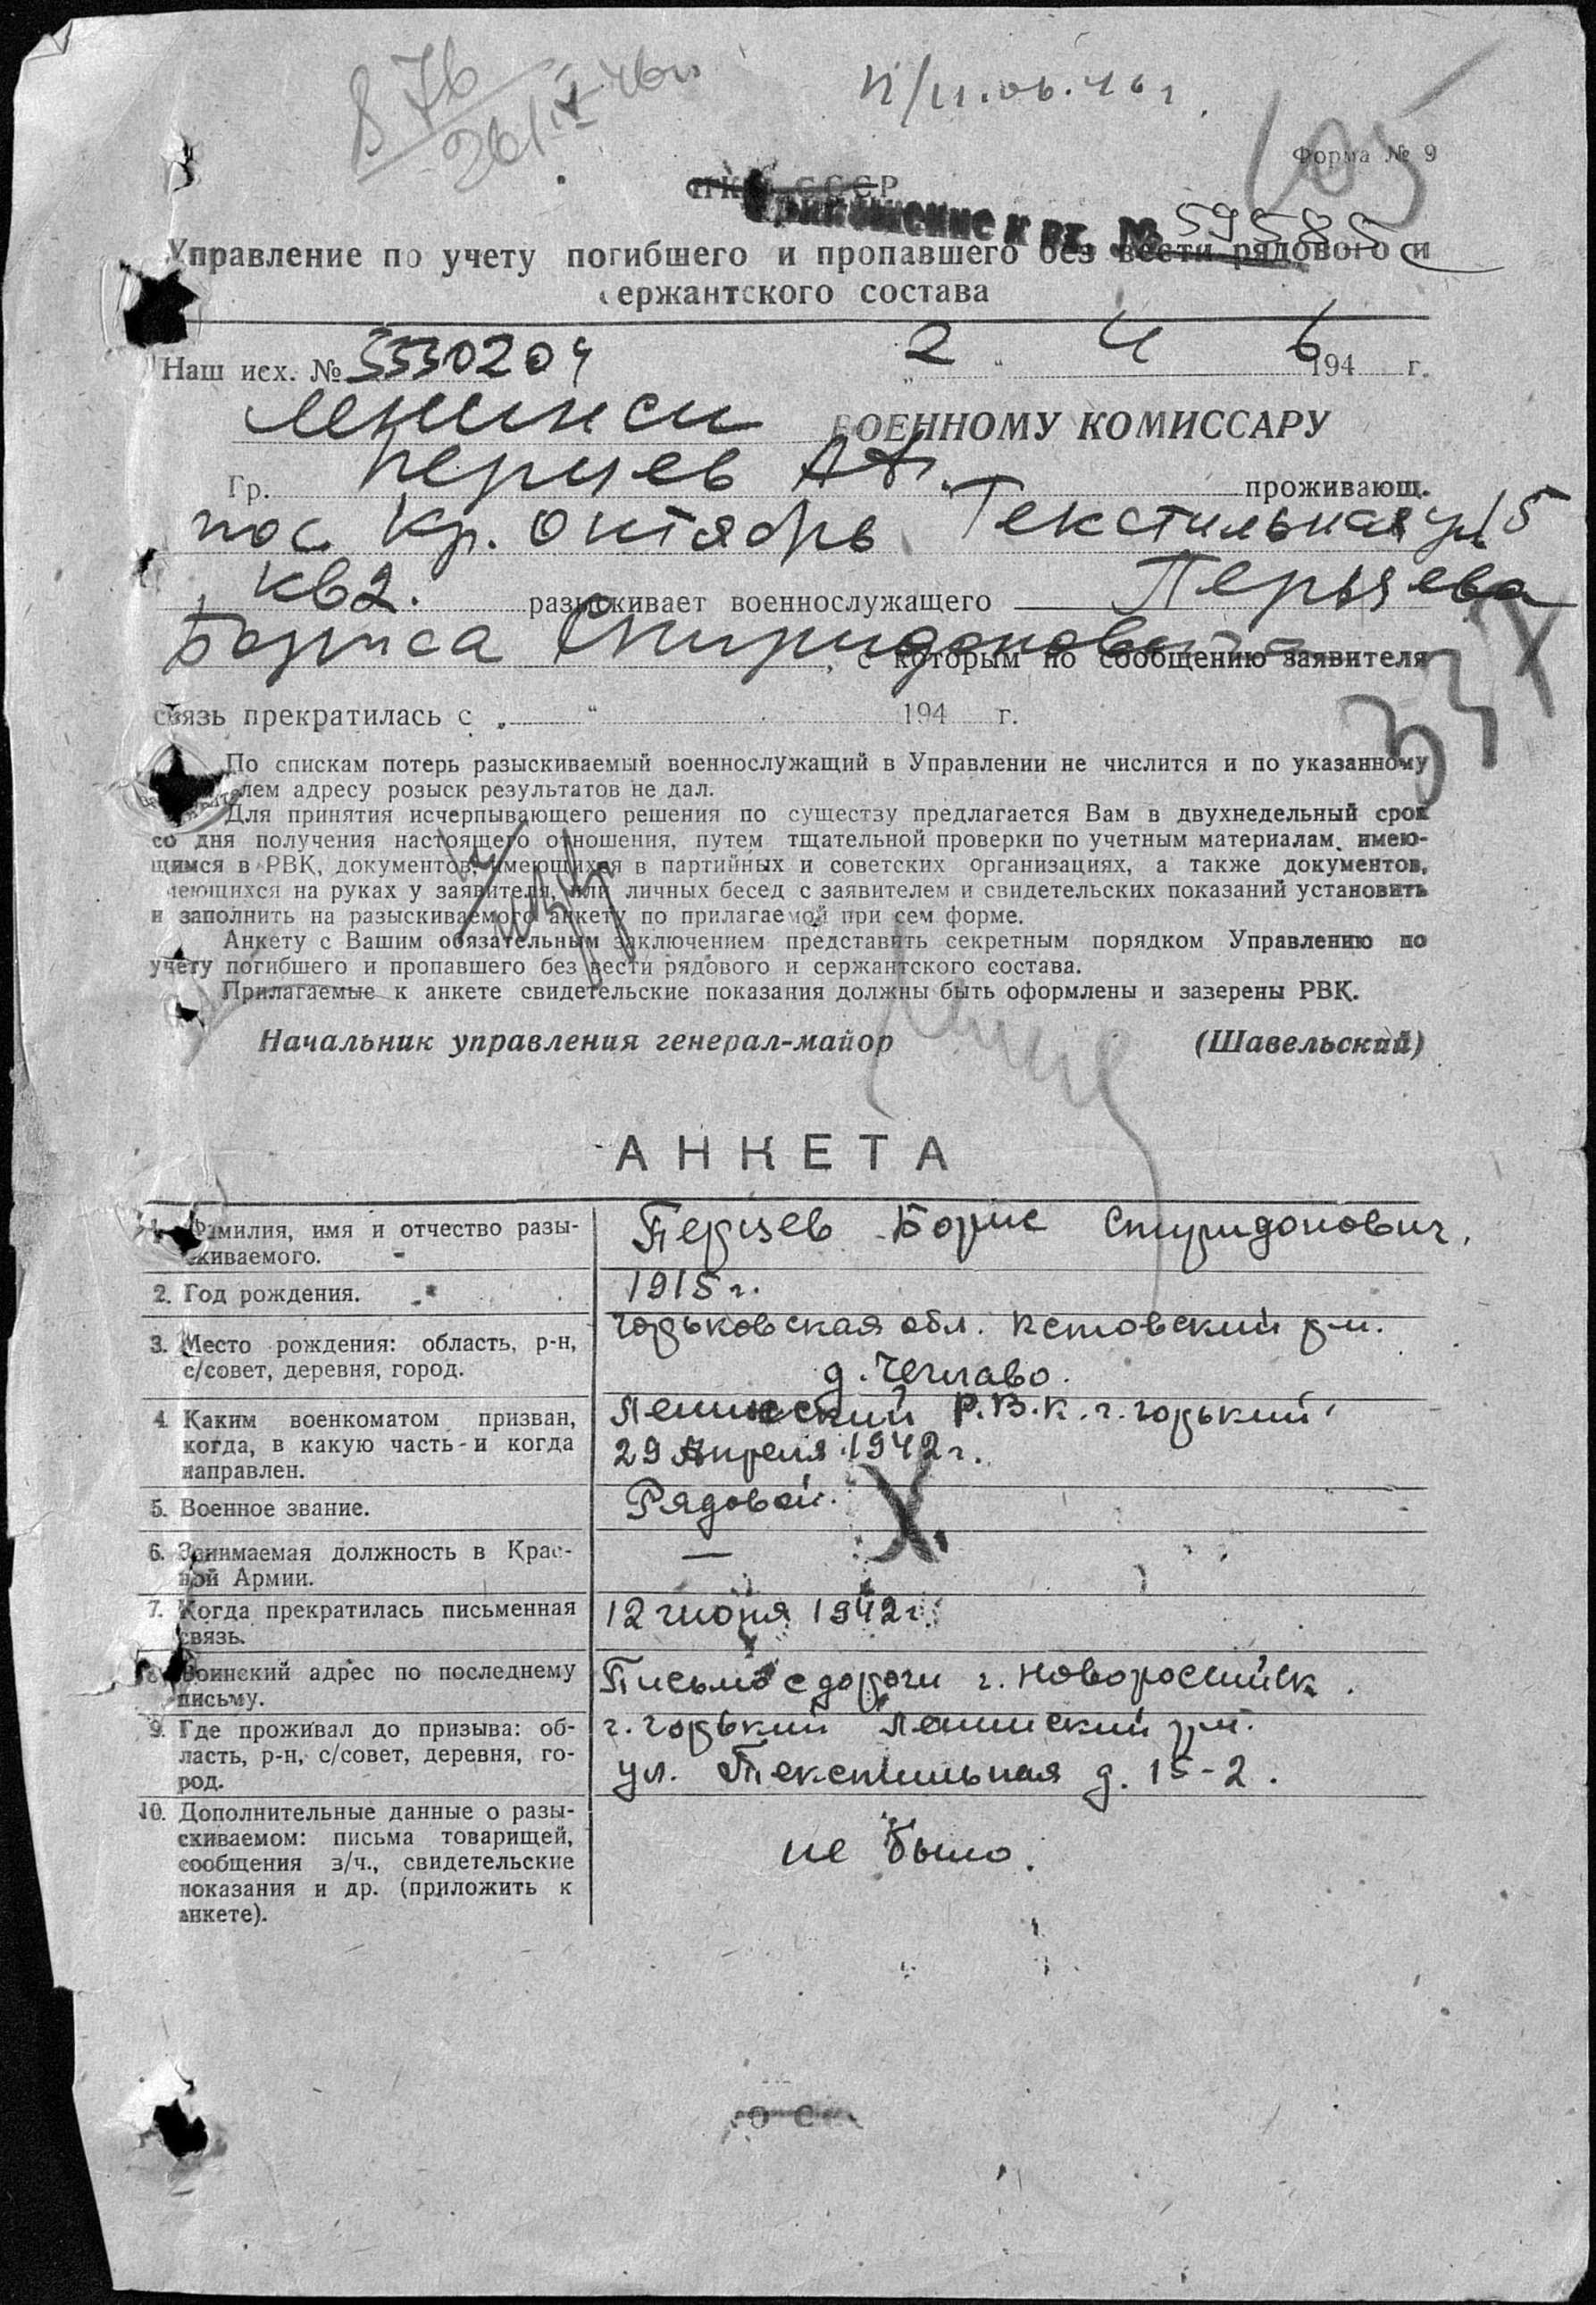 Форма № 9
СССР
Приложение к вх. № 59585
Управление по учету погибшего и пропавшего без вести рядового и
сержантского состава
Наш исх. № 5530204 „2“ 4 1946 г.
ВОЕННОМУ КОМИССАРУ
Гр. Перцев А проживающ.
пос Кр. Октябрь Текстильная ул 15
кв 2. разыскивает военнослужащего Перцева
Бориса Спиридоновича, с которым по сообщению заявителя
связь прекратилась с „ “ 194 г.
337
По спискам потерь разыскиваемый военнослужащий в Управлении не числится и по указанному
лем адресу розыск результатов не дал.
Для принятия исчерпывающего решения по существу предлагается Вам в двухнедельный срок
со дня получения настоящего отношения, путем тщательной проверки по учетным материалам, имею-
щимся в РВК, документов, имеющихся в партийных и советских организациях, а также документов,
имеющихся на руках у заявителя, или личных бесед с заявителем и свидетельских показаний установить
и заполнить на разыскиваемого анкету по прилагаемой при сем форме.
Анкету с Вашим обязательным заключением представить секретным порядком Управлению по
учету погибшего и пропавшего без вести рядового и сержантского состава.
Прилагаемые к анкете свидетельские показания должны быть оформлены и заверены РВК.
Начальник управления генерал-майор (Шавельский)
АНКЕТА
1. Фамилия, имя и отчество разы-
скиваемого.
Перцев Борис Спиридонович.
2. Год рождения.
1915 г.
3. Место рождения: область, р-н,
с/совет, деревня, город.
Горьковская обл. Кстовский р-н.
4. Каким военкоматом призван,
когда, в какую часть и когда
направлен.
Ленинский Р.В.К. г. Горький
29 Апреля 1942 г.
5. Военное звание.
Рядовой.
6. Занимаемая должность в Крас-
ной Армии.
—
7. Когда прекратилась письменная
связь.
12 июня 1942 г.
8. Воинский адрес по последнему
письму.
Письмо с дороги г. Новороссийск.
9. Где проживал до призыва: об-
ласть, р-н, с/совет, деревня, го-
род.
г. Горький Ленинский р-н.
ул. Текстильная д. 15-2.
10. Дополнительные данные о разы-
скиваемом: письма товарищей,
сообщения з/ч., свидетельские
показания и др. (приложить к
анкете).
не было.